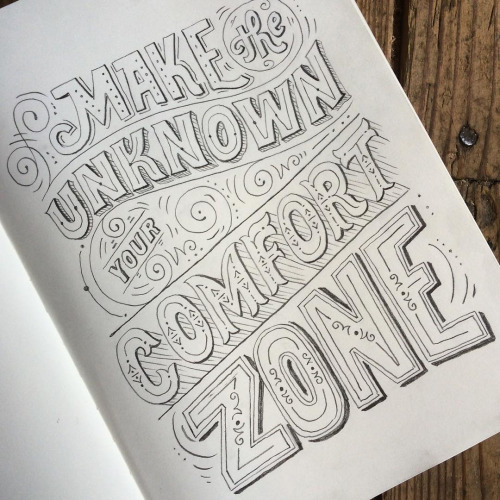 MAKE the
UNKNOWN
YOUR
COMFORT
ZONE